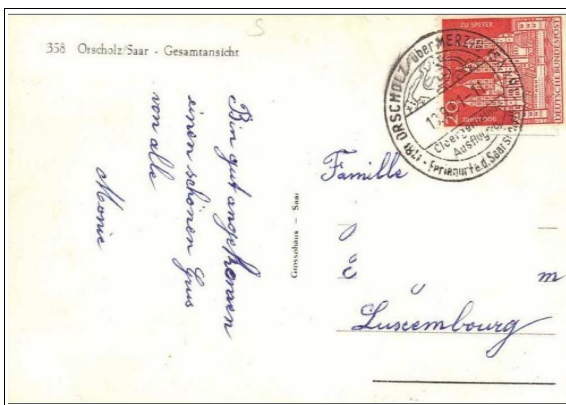 358 Orscholz/Saar - Gesamtansicht
Bin gut angekommen
einen schönen Grus
von alle
Monie
Grosshaus - Saar
ZU SPEYER
DEUTSCHE BUNDESPOST
20
900 JAHRE
ORSCHOLZ/über MERZIG
Cloef
Ausflug
Ferienort a.d. Saar
Famille
m
Luxembourg